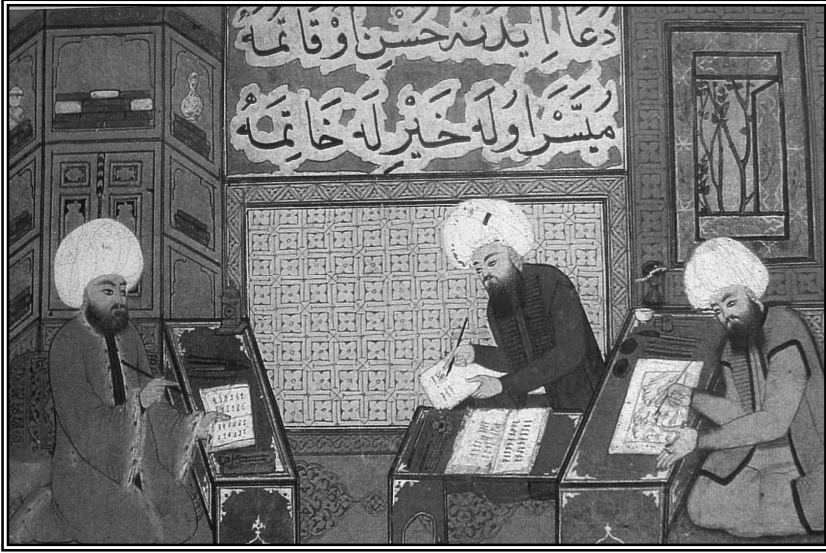 دُعَا اِيدَنَه حُسْنِ اَوْقَاتِمَهْ
مُيَسَّرْ اوُلَه خَيْرِ لَه خَاتِمَهْ